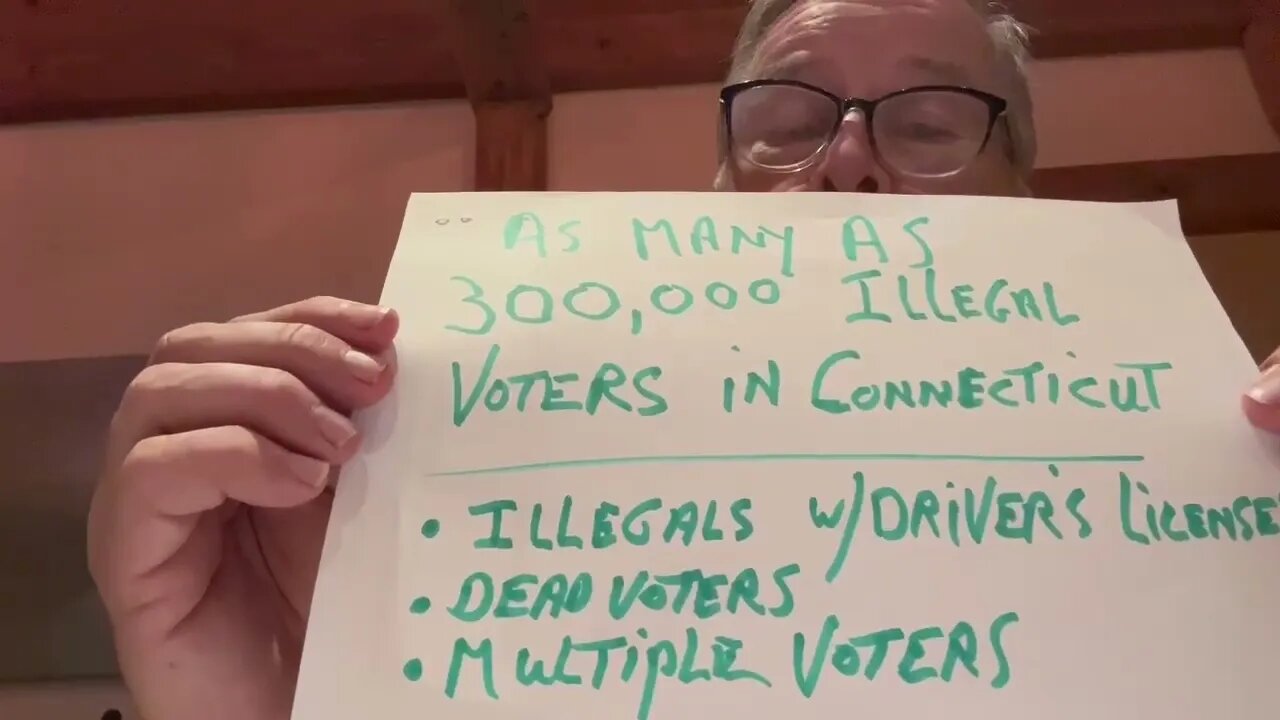 AS MANY AS
300,000 ILLEGAL
VOTERS IN CONNECTICUT
• ILLEGALS W/DRIVER'S LICENSE
• DEAD VOTERS
• MULTIPLE VOTERS